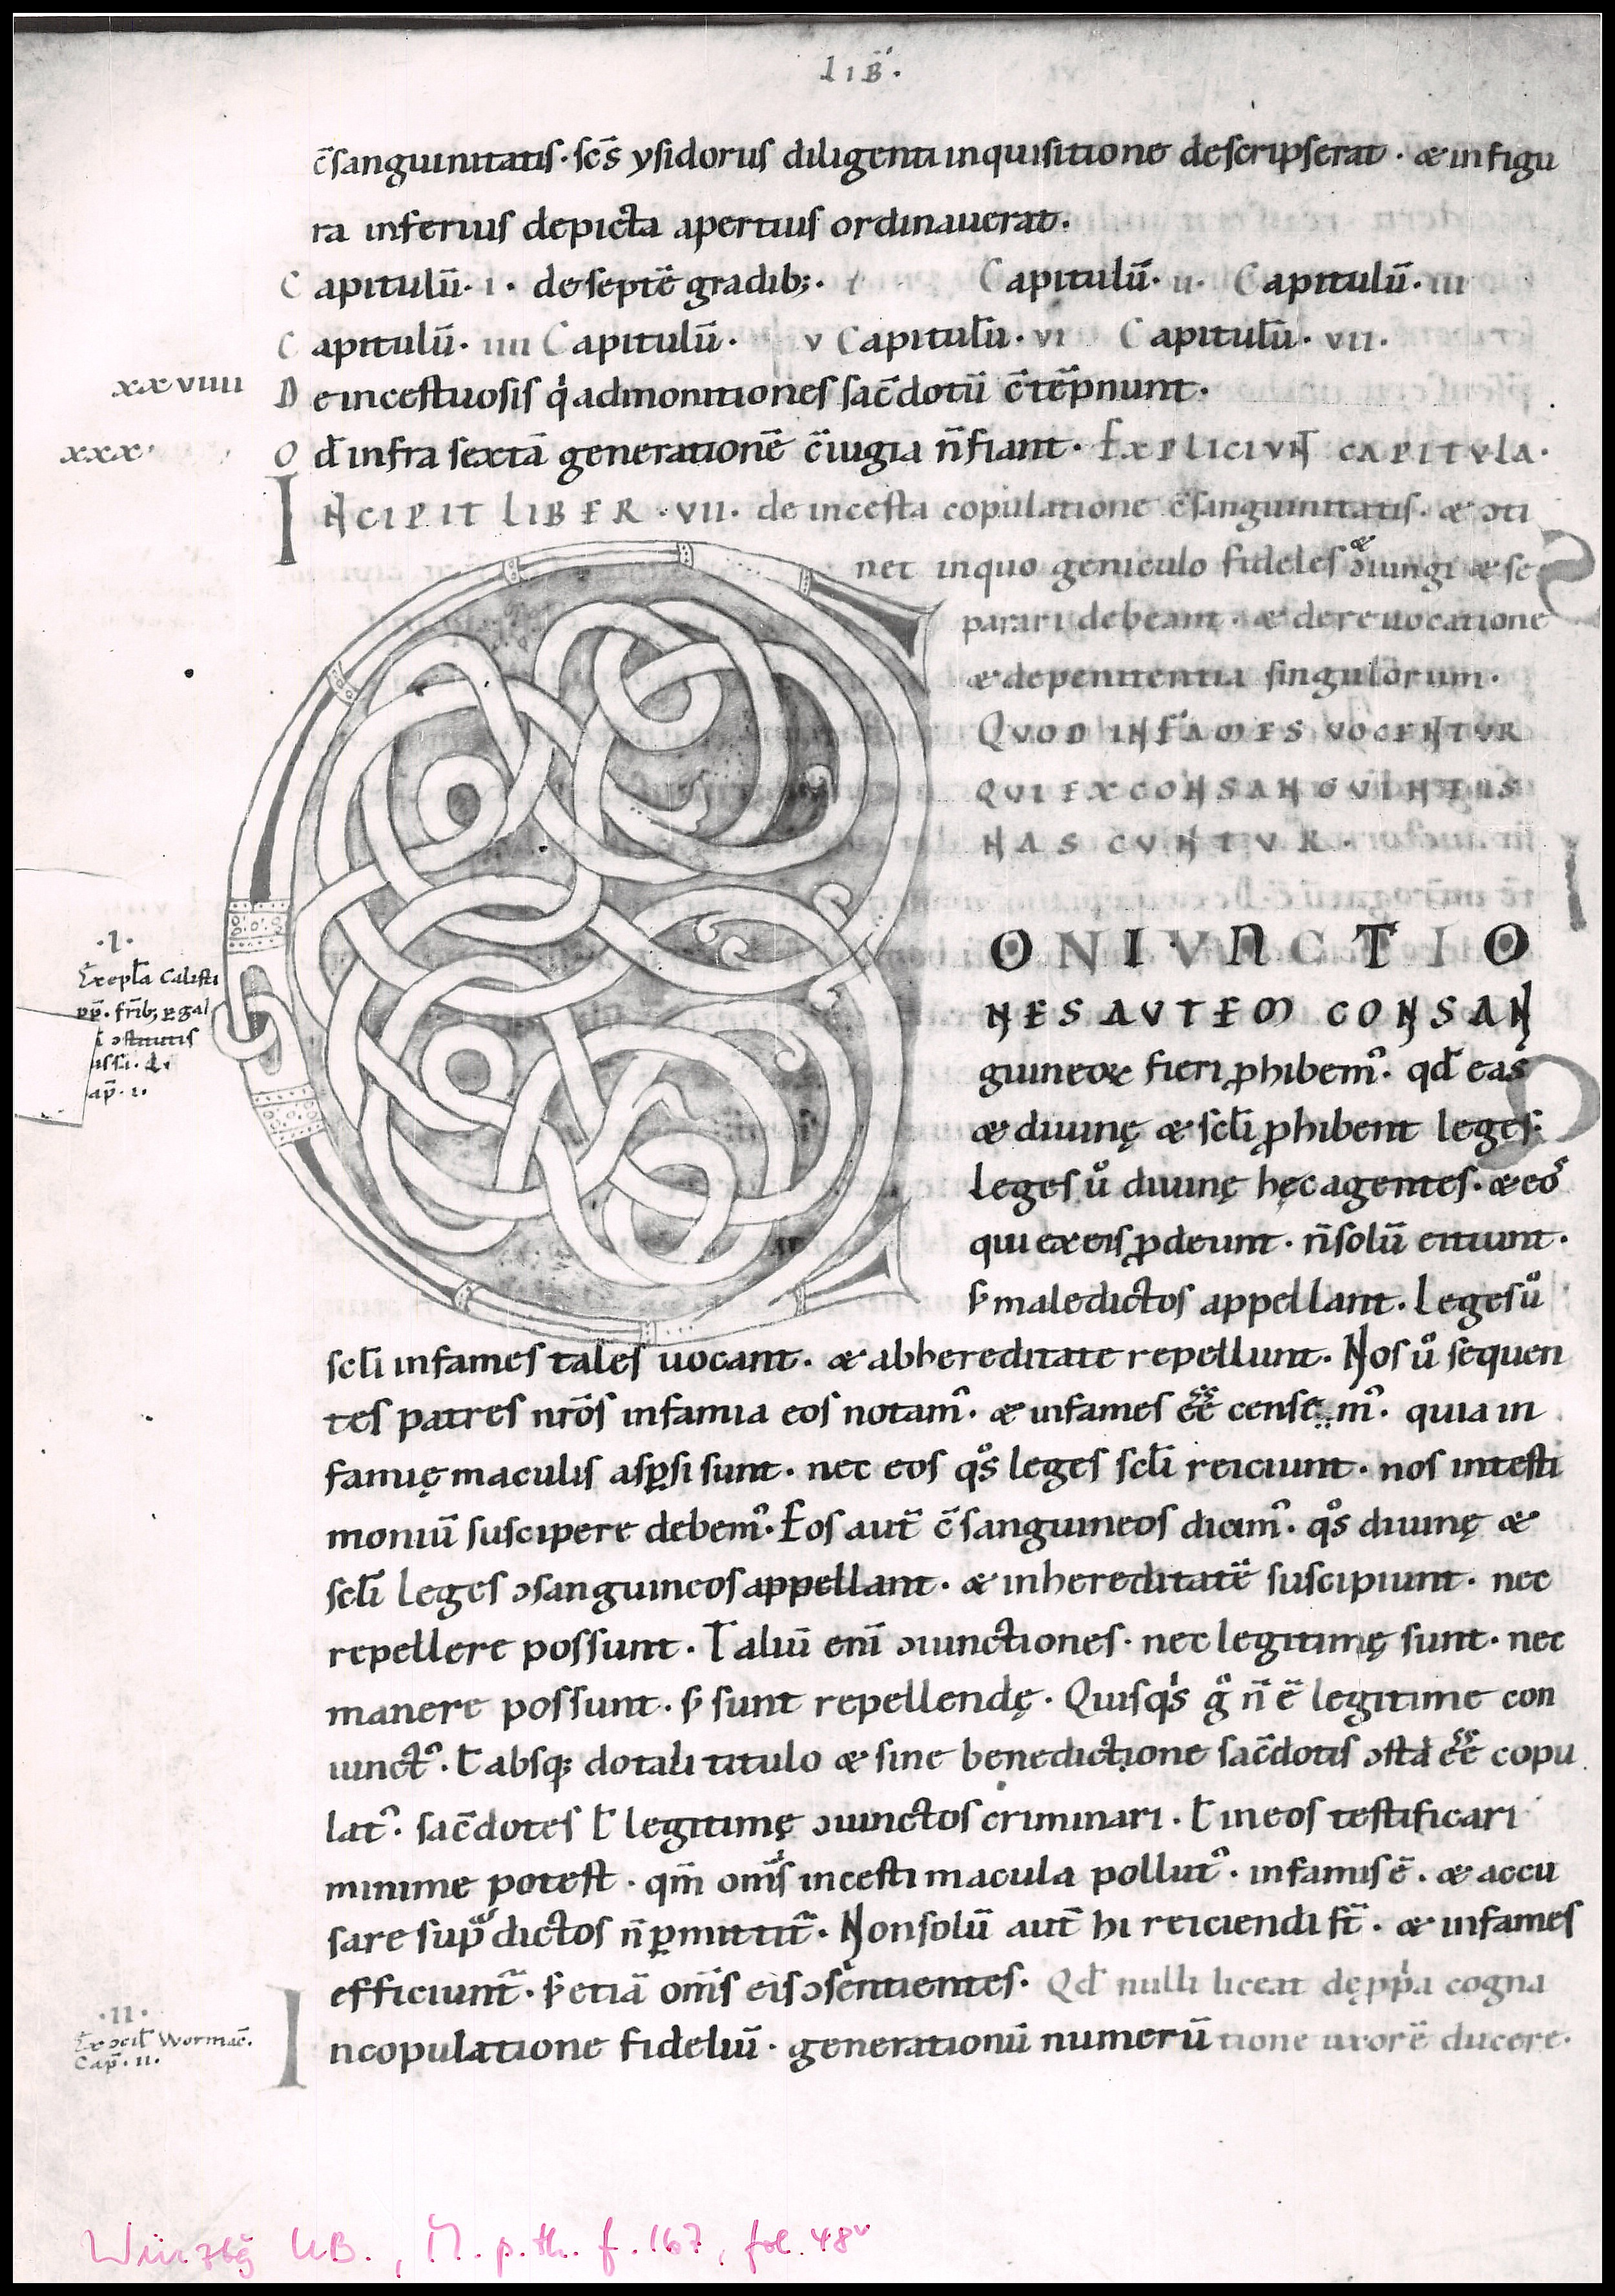 LIB̄.
c̄sanguinitatis· sc̄s ysidorus diligenti inquisitione descripserat· & in figu
ra inferius depicta apertius ordinauerat.
Capitulū· i· de septē gradib;· Capitulū· ii· Capitulū· iii
Capitulū· iiii Capitulū· v Capitulū· vi Capitulū· vii·
xxviiii De incestuosis q̇ admonitiones sac̄dotū c̄tēpnunt·
xxx· Qd̄ infra sextā generationē c̄iugia n̄ fiant· EXPLICIVNT CAPITVLA·
INCIPIT LIBER·VII· de incesta copulatione c̄sanguinitatis· & ↄti
net in quo geniculo fideles & ↄiungi & se
parari debeant· & de reuocatione
& de penitentia singulorum·
QVOD INFAMES VOCENTVR
QVI EX CONSANGVINEIS
NASCVNTVR·
CONIVNCTIO
NES AVTEM CONSAN
guineoꝝ fieri ꝓhibem᾿· qd̄ eas
& diuinę & scl̄i ꝓhibent leges·
Leges ů diuinę hęc agentes· & eos
qui ex eis ꝓdeunt· n̄ solū eiciunt·
s; maledictos appellant· Leges ů
scl̄i infames tales uocant· & ab hereditate repellunt· Nos ů sequen
tes patres nr̄os infamia eos notam᾿· & infames ēē censem᾿· quia in
famię maculis aspsi sunt· nec eos q̊s leges scl̄i reiciunt· nos in testi
moniū suscipere debem᾿· Eos aut̄ c̄sanguineos dicim᾿· q̊s diuinę &
scl̄i leges ↄsanguineos appellant· & in hereditatē suscipiunt· nec
repellere possunt· Taliū enī ↄiunctiones· nec legitimę sunt· nec
manere possunt· s; sunt repellendę· Quisq̇s g̊ n̄ ē legitime con
iunct᾿· ł absq; dotali titulo & sine benedictione sac̄dotis ↄstat ēē copu
lat᾿· sac̄dotes ł legitimę ↄiunctos criminari· ł in eos testificari
minime potest· qm̄ om̄is incesti macula pollut᾿· infamis ē· & accu
sare sup̄dictos n̄ ꝑmittit᾿· Non solū aut̄ hi reiciendi s̄t· & infames
efficiunt᾿· s; etiā om̄s eis ↄsentientes· Qd̄ nulli liceat de ꝓpria cogna
In copulatione fideliū· generationū numerū tione uxorē ducere·
·I·
Ex epl̄a Calisti
pp̄· frīb; ꝑ gal
ↄstitutis
ap̄· i·
·II·
Ex ↄcil̄ Wormac̄·
Cap̄· ii·
Würzbg UB., M. p. th. f. 167, fol. 48v